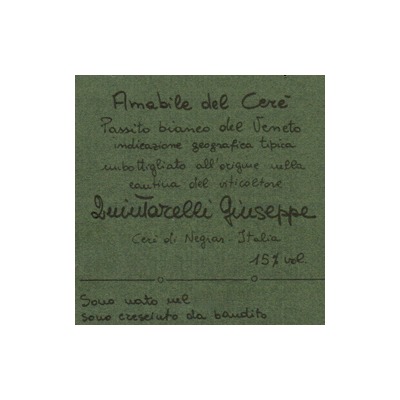 Amabile del Cerè
Passito bianco del Veneto
indicazione geografica tipica
imbottigliato all'origine nella
cantina del viticoltore
Quintarelli Giuseppe
Cerè di Negrar - Italia
15% vol.
Sono nato nel
sono cresciuto da bandito